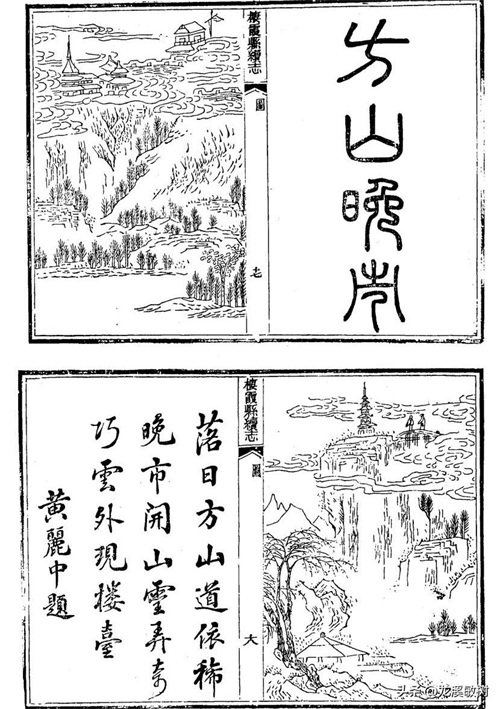 方山晚市
棲霞縣續志
圖
棲霞縣續志
圖
落日方山道依稀
晚市開山靈弄奇
巧雲外現楼臺
黃麗中題
头条 @龙溪